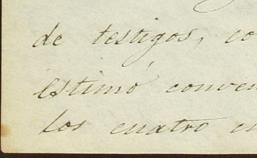 de testigos, co
estimó conven
los cuatro en